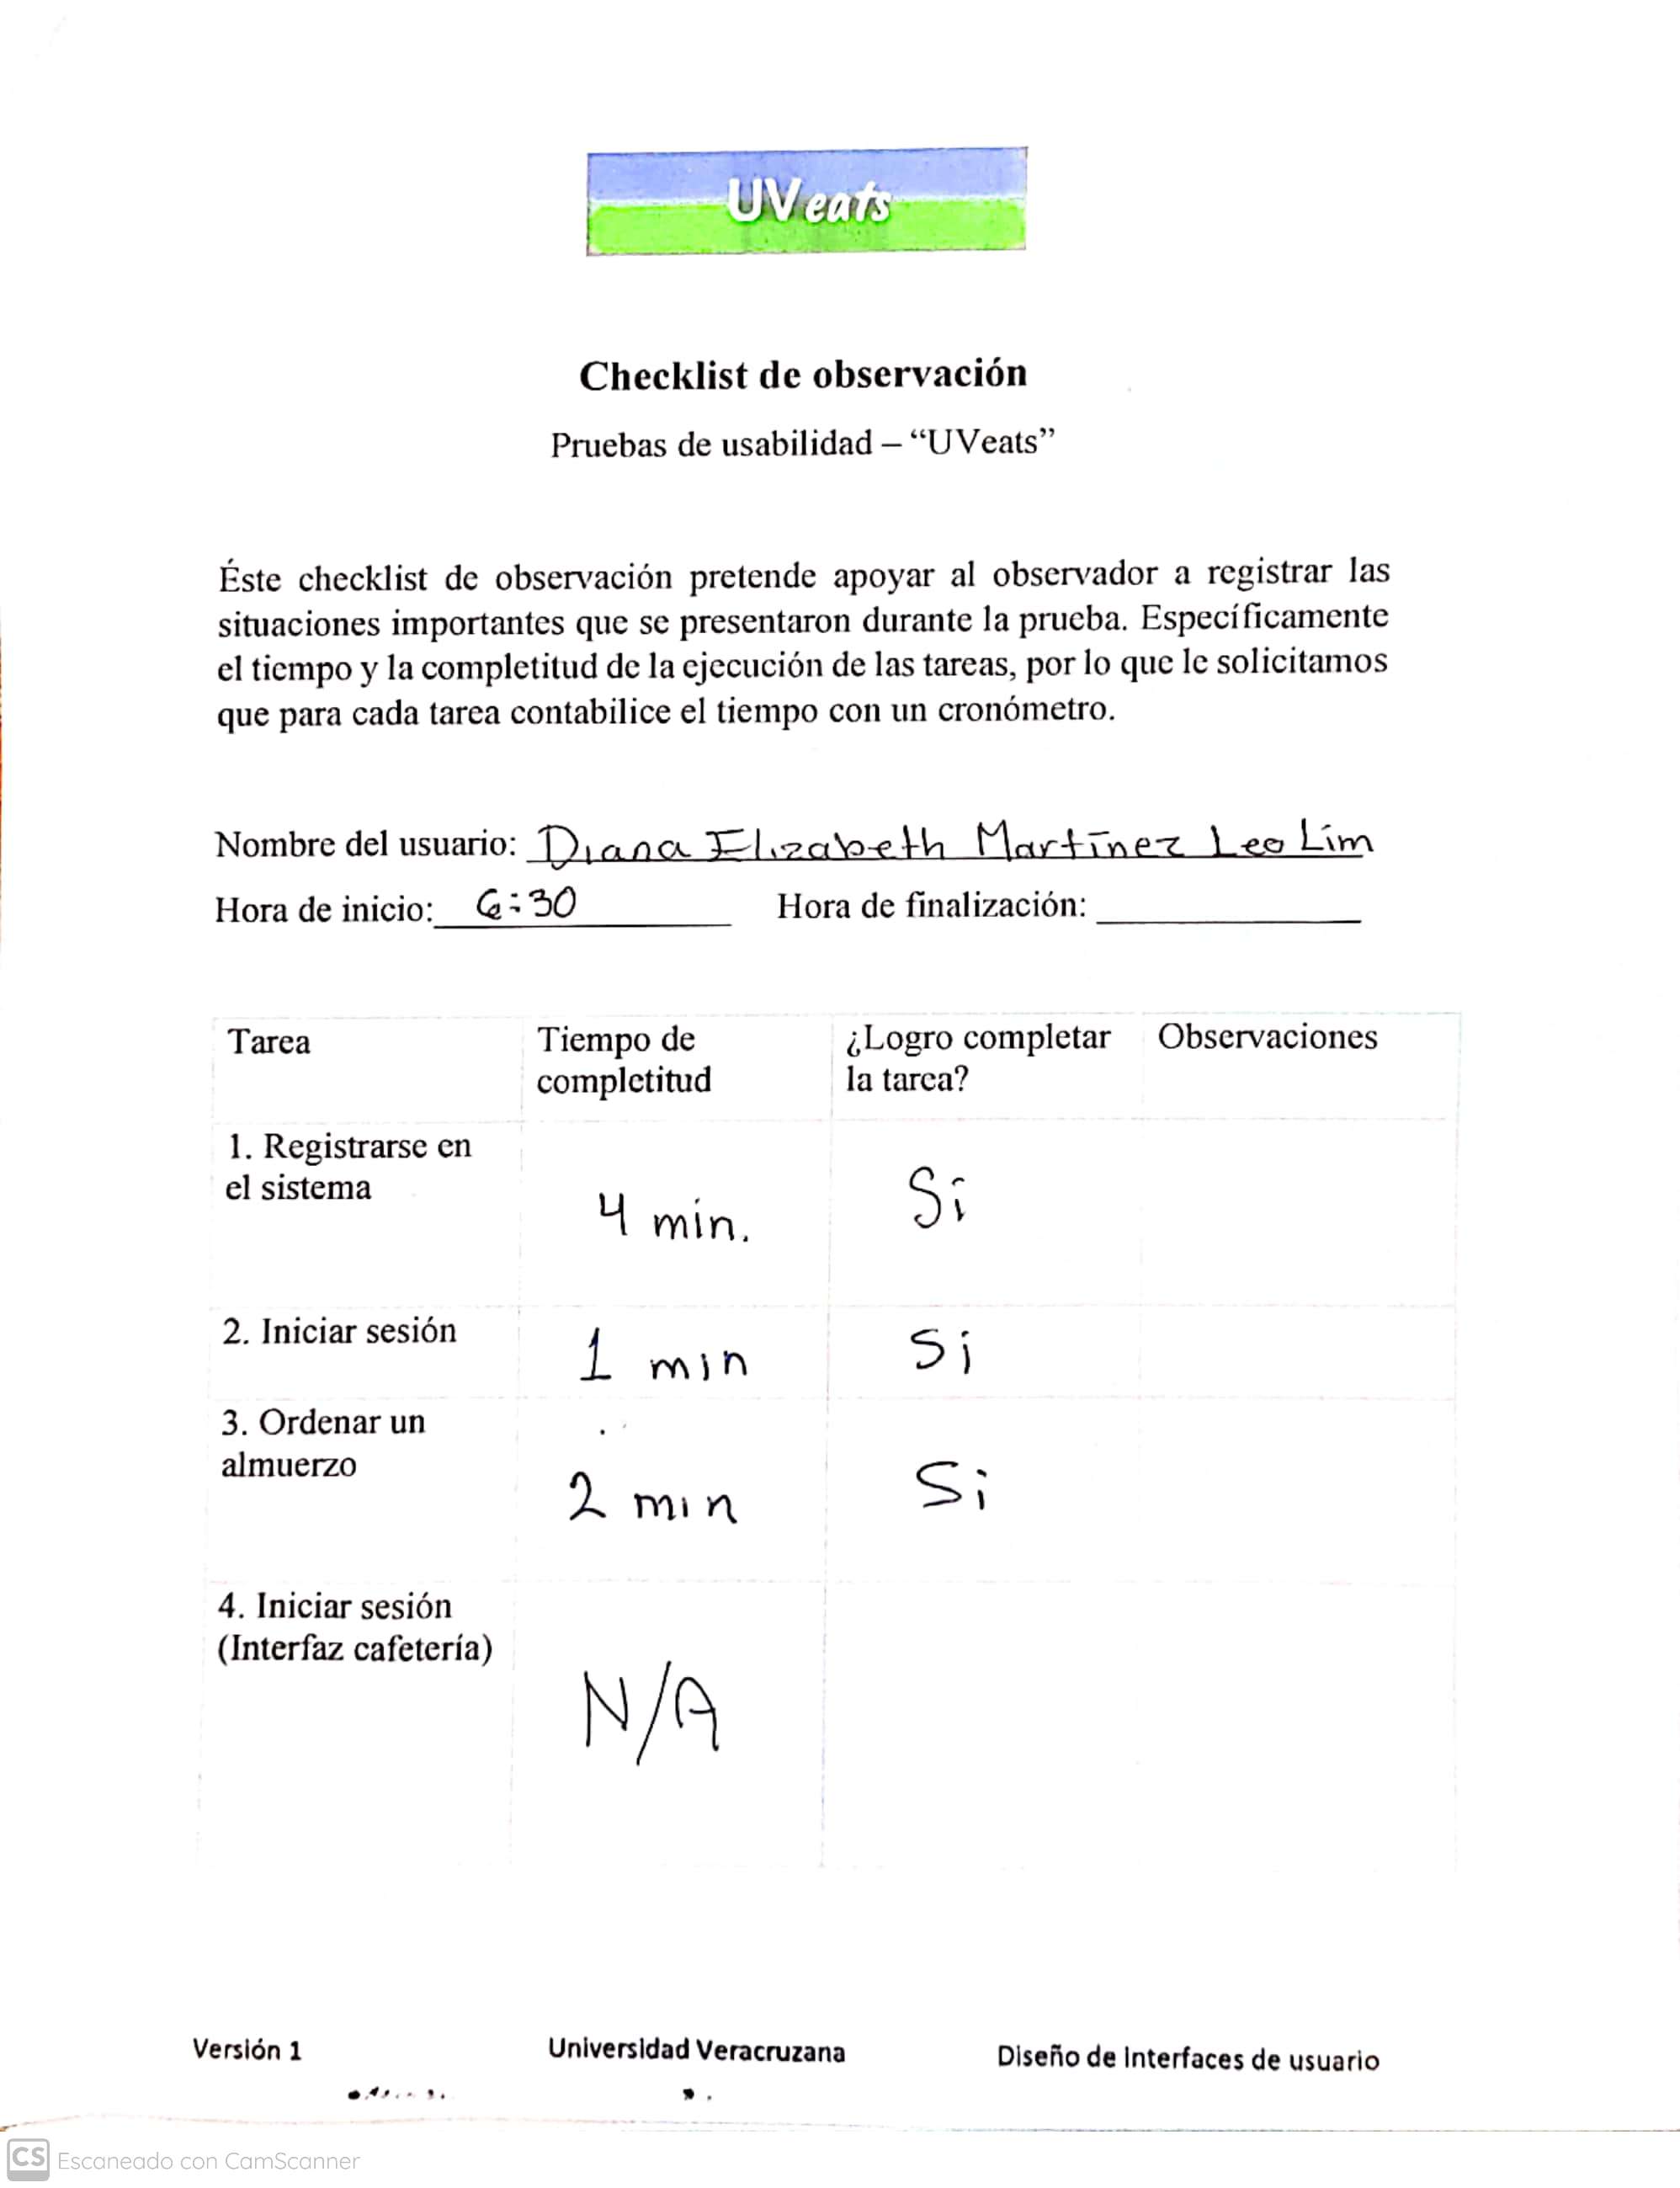 UVeats
Checklist de observación
Pruebas de usabilidad – “UVeats”
Éste checklist de observación pretende apoyar al observador a registrar las
situaciones importantes que se presentaron durante la prueba. Específicamente
el tiempo y la completitud de la ejecución de las tareas, por lo que le solicitamos
que para cada tarea contabilice el tiempo con un cronómetro.
Nombre del usuario: Diana Elizabeth Martínez Leo Lim
Hora de inicio: 6:30 Hora de finalización:
Tarea Tiempo de completitud ¿Logro completar la tarea? Observaciones
1. Registrarse en el sistema 4 min. Si
2. Iniciar sesión 1 min Si
3. Ordenar un almuerzo 2 min Si
4. Iniciar sesión (Interfaz cafetería) N/A
Versión 1 Universidad Veracruzana Diseño de Interfaces de usuario
CS Escaneado con CamScanner